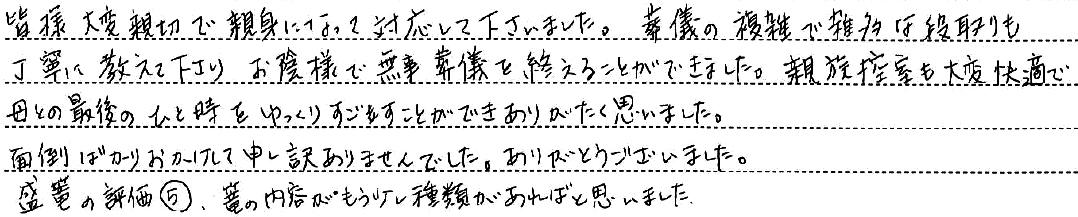 皆様大変親切で親身になって対応して下さいました。葬儀の複雑で雑多な段取りも
丁寧に教えて下さり お陰様で無事葬儀を終えることができました。親族控室も大変快適で
母との最後のひと時をゆっくりすごをすことができありがたく思いました。
面倒ばかりおかけして申し訳ありませんでした。ありがとうございました。
盛篭の評価⑤、篭の内容がもう少し種類があればと思いました.